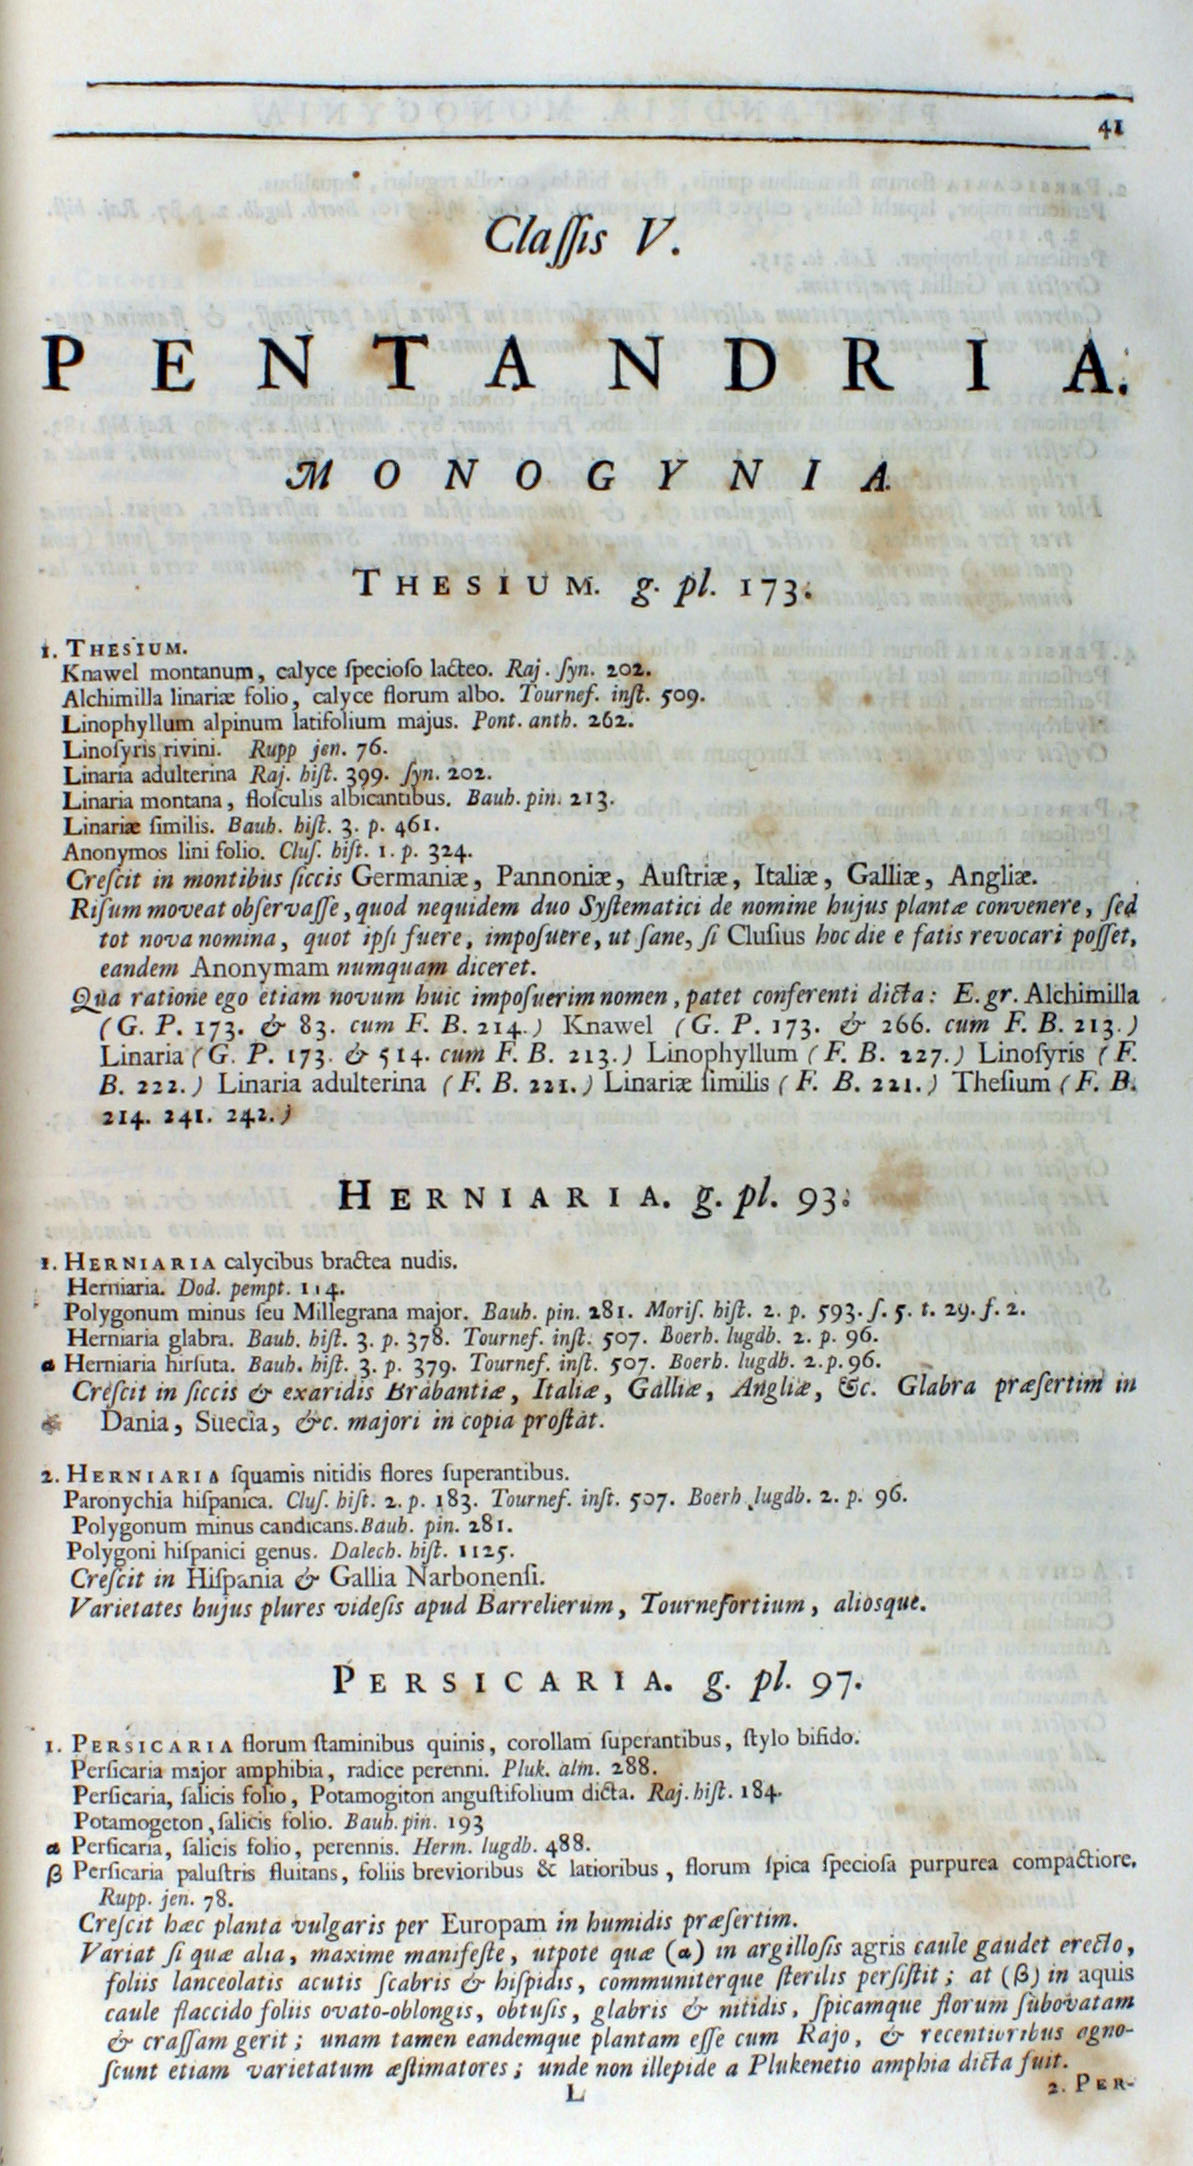 41
Claſſis V.
PENTANDRIA.
MONOGYNIA.
THESIUM. g. pl. 173.
1. THESIUM.
Knawel montanum, calyce ſpecioſo lacteo. Raj. ſyn. 202.
Alchimilla linariæ folio, calyce florum albo. Tournef. inſt. 509.
Linophyllum alpinum latifolium majus. Pont. anth. 262.
Linoſyris rivini. Rupp jen. 76.
Linaria adulterina Raj. hiſt. 399. ſyn. 202.
Linaria montana, floſculis albicantibus. Bauh. pin. 213.
Linariæ ſimilis. Bauh. hiſt. 3. p. 461.
Anonymos lini folio. Cluſ. hiſt. 1. p. 324.
Creſcit in montibus ſiccis Germaniæ, Pannoniæ, Auſtriæ, Italiæ, Galliæ, Angliæ.
Riſum moveat obſervaſſe, quod nequidem duo Syſtematici de nomine hujus plantæ convenere, ſed
tot nova nomina, quot ipſi fuere, impoſuere, ut ſane, ſi Cluſius hoc die e fatis revocari poſſet,
eandem Anonymam numquam diceret.
Qua ratione ego etiam novum huic impoſuerim nomen, patet conferenti dicta: E. gr. Alchimilla
(G. P. 173. & 83. cum F. B. 214.) Knawel (G. P. 173. & 266. cum F. B. 213.)
Linaria (G. P. 173. & 514. cum F. B. 213.) Linophyllum (F. B. 227.) Linoſyris (F.
B. 222.) Linaria adulterina (F. B. 221.) Linariæ ſimilis (F. B. 221.) Theſium (F. B.
214. 241. 242.)
HERNIARIA. g. pl. 93.
1. HERNIARIA calycibus bractea nudis.
Herniaria. Dod. pempt. 114.
Polygonum minus ſeu Millegrana major. Bauh. pin. 281. Moriſ. hiſt. 2. p. 593. ſ. 5. t. 29. f. 2.
Herniaria glabra. Bauh. hiſt. 3. p. 378. Tournef. inſt. 507. Boerh. lugdb. 2. p. 96.
α Herniaria hirſuta. Bauh. hiſt. 3. p. 379. Tournef. inſt. 507. Boerh. lugdb. 2. p. 96.
Creſcit in ſiccis & exaridis Brabantiæ, Italiæ, Galliæ, Angliæ, &c. Glabra præſertim in
Dania, Suecia, &c. majori in copia proſtat.
2. HERNIARIA ſquamis nitidis flores ſuperantibus.
Paronychia hiſpanica. Cluſ. hiſt. 2. p. 183. Tournef. inſt. 507. Boerh. lugdb. 2. p. 96.
Polygonum minus candicans. Bauh. pin. 281.
Polygoni hiſpanici genus. Dalech. hiſt. 1125.
Creſcit in Hiſpania & Gallia Narbonenſi.
Varietates hujus plures videſis apud Barrelierum, Tournefortium, aliosque.
PERSICARIA. g. pl. 97.
1. PERSICARIA florum ſtaminibus quinis, corollam ſuperantibus, ſtylo bifido.
Perſicaria major amphibia, radice perenni. Pluk. alm. 288.
Perſicaria, ſalicis folio, Potamogiton anguſtifolium dicta. Raj. hiſt. 184.
Potamogeton, ſalicis folio. Bauh. pin. 193
α Perſicaria, ſalicis folio, perennis. Herm. lugdb. 488.
β Perſicaria paluſtris fluitans, foliis brevioribus & latioribus, florum ſpica ſpecioſa purpurea compactiore.
Rupp. jen. 78.
Creſcit hæc planta vulgaris per Europam in humidis præſertim.
Variat ſi quæ alia, maxime manifeſte, utpote quæ (α) in argilloſis agris caule gaudet erecto,
foliis lanceolatis acutis ſcabris & hiſpidis, communiterque ſterilis perſiſtit; at (β) in aquis
caule flaccido foliis ovato-oblongis, obtuſis, glabris & nitidis, ſpicamque florum ſubovatam
& craſſam gerit; unam tamen eandemque plantam eſſe cum Rajo, & recentioribus agno-
ſcunt etiam varietatum æſtimatores; unde non illepide a Plukenetio amphia dicta fuit.
L
2. PER-